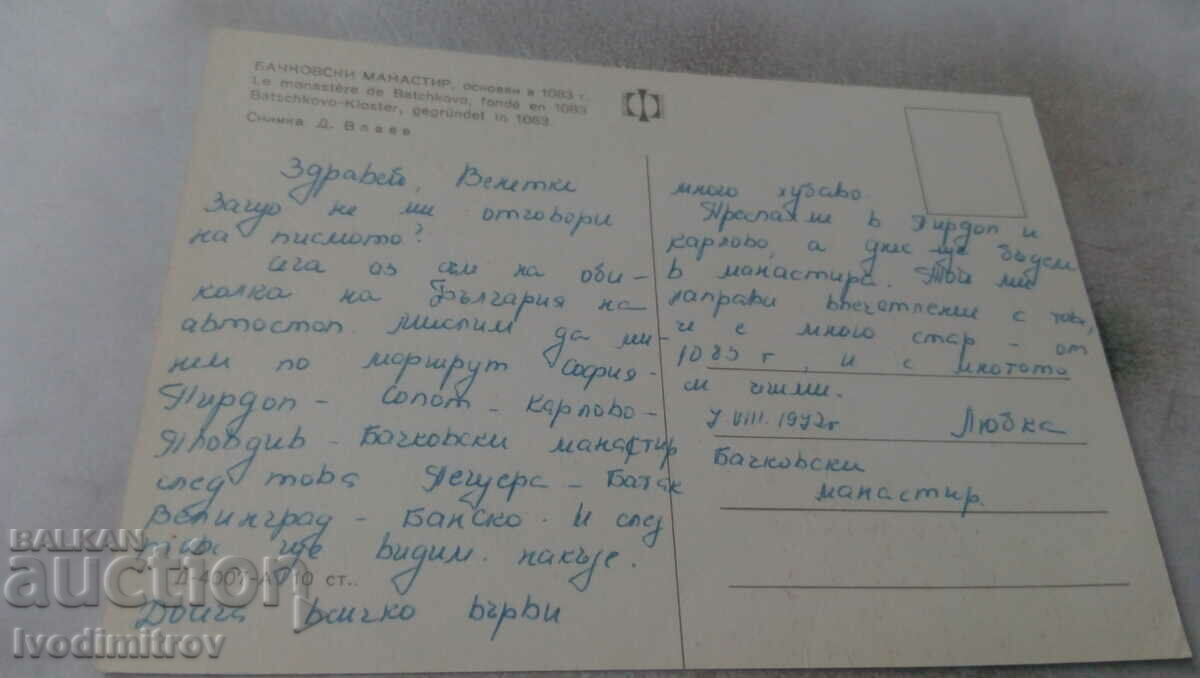 БАЧКОВСКИ МАНАСТИР, основан в 1083 г.
Le monastère de Batchkovo, fondé en 1083
Batschkovo-Kloster, gegründet in 1083.
Снимка Д. Влаев
Здравей, Венетке
Защо не ми отговори
на писмото?
Сега аз съм на оби-
колка на България на
автостоп. Мислим да ми-
нем по маршрут София -
Пирдоп - Сопот - Карлово -
Пловдив - Бачковски манастир
след това Пещера - Батак
Велинград - Банско. И след
това ще видим накъде.
Д-4007-А 10 ст..
Дотук всичко върви
много хубаво.
Преспахме в Пирдоп и
Карлово, а днес ще бъдем
в манастира. Той ми
направи впечатление с това,
че е много стар - от
1083 г, и с многото
си чешми.
7 VIII. 1972г Любка
Бачковски
манастир.
BALKAN
auction
Ivodimitrov